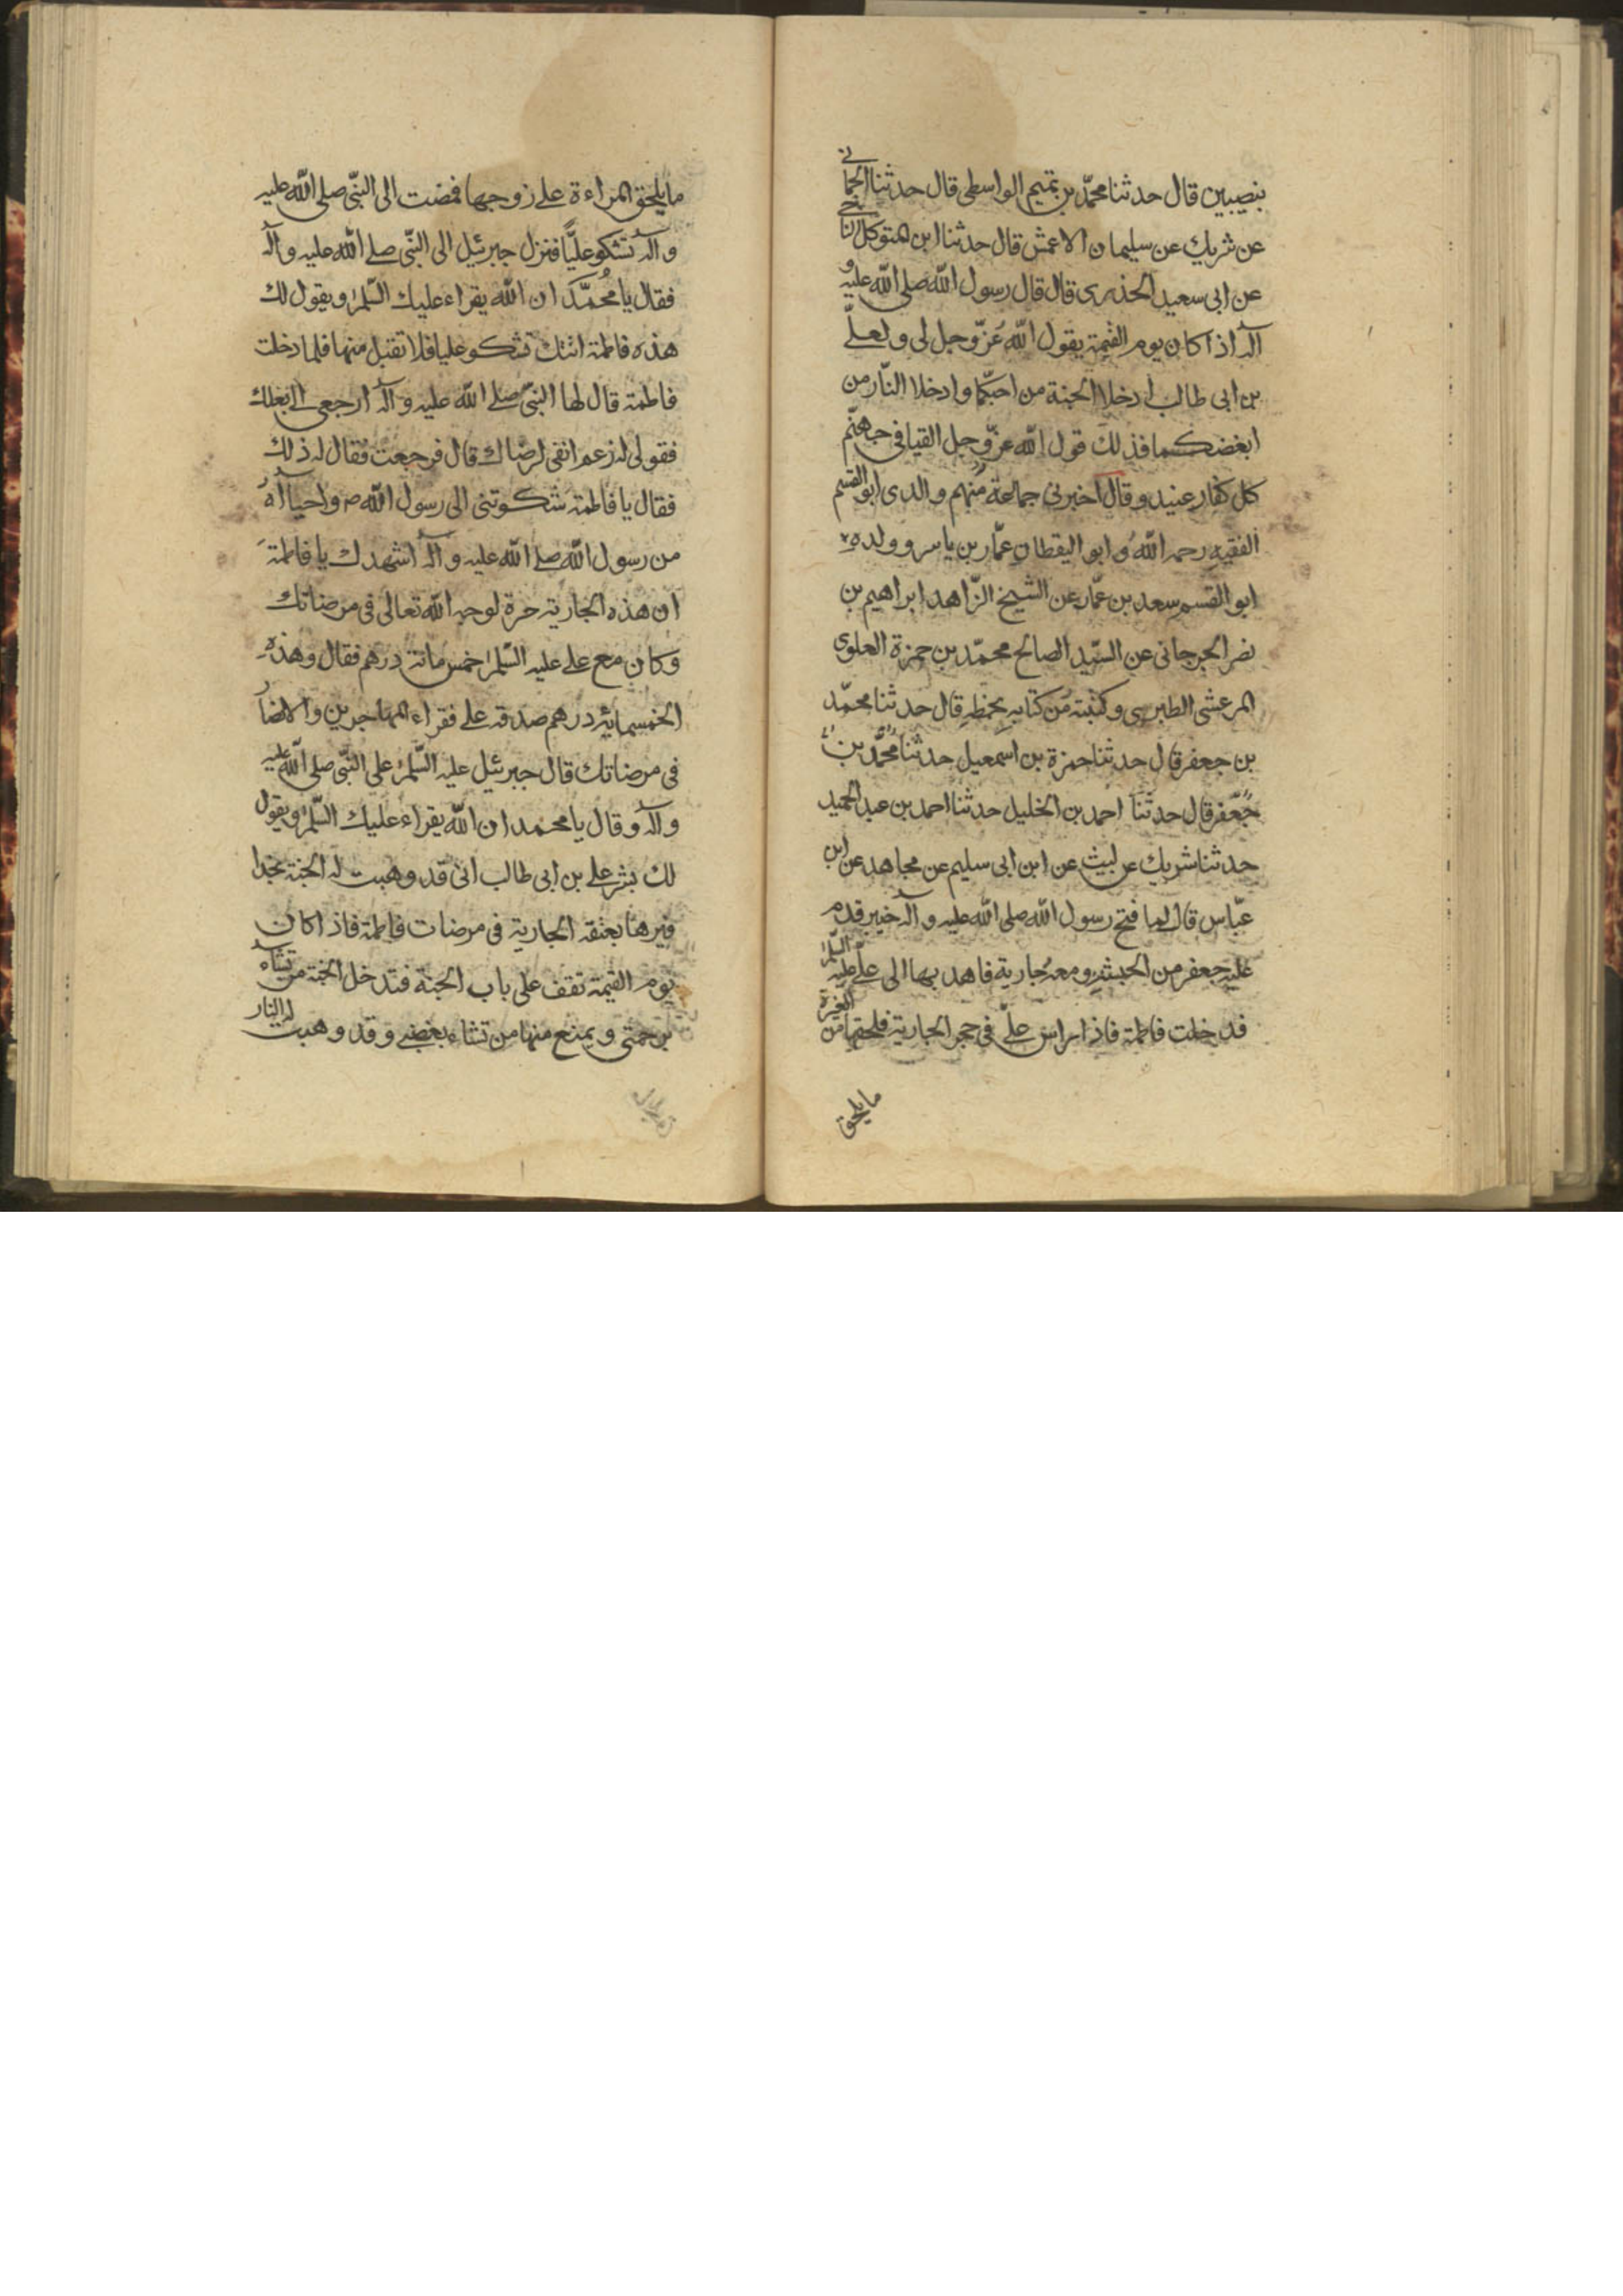 بنصيبين قال حدثنا محمّد بن تميم الواسطى قال حدثنا الحمانے
عن شريك عن سليمان الاعمش قال حدثنا ابن المتوكل الناجے
عن ابى سعيد الخذرى قال قال رسول اللّه صلى اللّه عليه و
آله اذا كان يوم القيمة يقول اللّه عَزّ وجل لى ولعلّے
بن ابى طالب ادخلا الجنة من احبّكما وادخلا النّار من
ابغضكما فذلك قول اللّه عزّ وجل القيا فى جهنّم
كل كفار عنيد وقال اخبرنى جماعة منهم والدى ابو القسم
الفقيه رحمه اللّه و ابو اليقظان عمّار بن ياسر وولده
ابو القسم سعد بن عمّار عن الشيخ الزّاهد ابراهيم بن
نصر الجرجانى عن السّيد الصالح محمّد بن حمزة العلوى
المرعشى الطبرسى وكتبته من كتابه بخطه قال حدثنا محمّد
بن جعفر قال حدثنا حمزة بن اسمعيل حدثنا محمّد بن
جعفر قال حدثنا احمد بن الخليل حدثنا احمد بن عبد الحميد
حدثنا شريك عن ليث عن ابن ابى سليم عن مجاهد عن ابن
عبّاس قال لما فتح رسول اللّه صلى اللّه عليه وآله خيبر قدم
عليه جعفر من الحبشة ومعه جارية فاهد بها الى علے عليه السّلم
فدخلت فاطمة فاذا راس علے فى حجر الجارية فلحقها من الغيرة
ما يلحق
ما يلحق المراءة على زوجها فمضت الى النّبى صلى اللّه عليه
وآله تشكو عليًّا فنزل جبرئيل الى النّبى صلے اللّه عليه وآله
فقال يا محُمّد ان اللّه يقراء عليك السّلم ويقول لك
هذه فاطمة اتتك تشكو عليا فلا تقبل منها فلما دخلت
فاطمة قال لها النّبى صلے اللّه عليه وآله ارجعى الے بعلك
فقولى له زعم انفى لرضاك قال فرجعت فقال له ذلك
فقال يا فاطمة شكوتنى الى رسول اللّه ص واحياآه
من رسول اللّه صلے اللّه عليه وآله اشهدك يا فاطمة
ان هذه الجارية حرة لوجه اللّه تعالى فى مرضاتك
وكان مع علے عليه السّلم خمس مائة درهم فقال وهذه
الخمسمائة درهم صدقة علے فقراء المهاجرين والانصار
فى مرضاتك قال جبرئيل عليه السّلم على النّبى صلى اللّه عليه
وآله وقال يا محمد ان اللّه يقراء عليك السّلم ويقول
لك بشر علے بن ابى طالب انى قد وهبت له الجنة بحذا
فيرها بعتقه الجارية فى مرضات فاطمة فاذا كان
يوم القيمة تقف على باب الجنة فتدخل الجنة من تشاء
برحمتى ويمنع منها من تشاء بغضبے وقد وهبت له النار